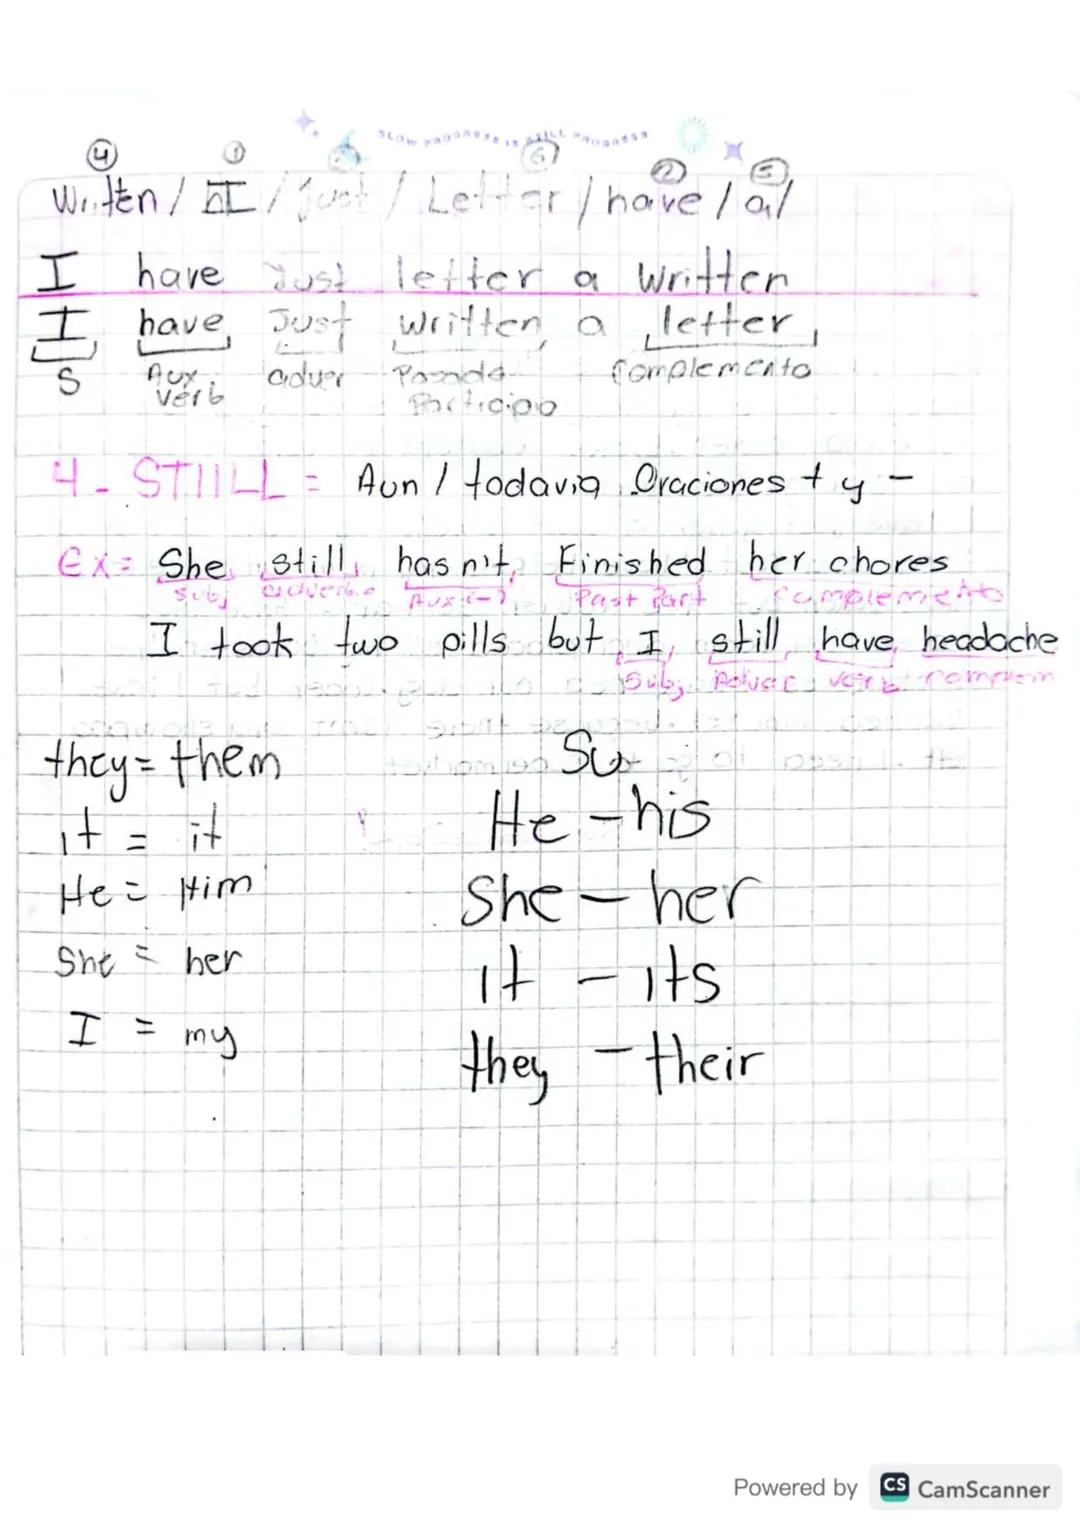 SLOW PROGRESS IS STILL PROGRESS
4 1 6 2 5
Written / I / Just / Letter / have / a/
I have Just letter a written
I have Just written a letter
S Aux. verb adver Pasado Participio Complemento
4- STIILL = Aun / todavia Oraciones + y -
Ex= She still hasn't Finished her chores
Subj adverbio Aux (-) Past Part Complemento
I took two pills but I still have headache
Subj Adver verb complem
they = them
it = it
He = Him
She = her
I = my
Su
He - his
She - her
it - its
they - their
Powered by CS CamScanner